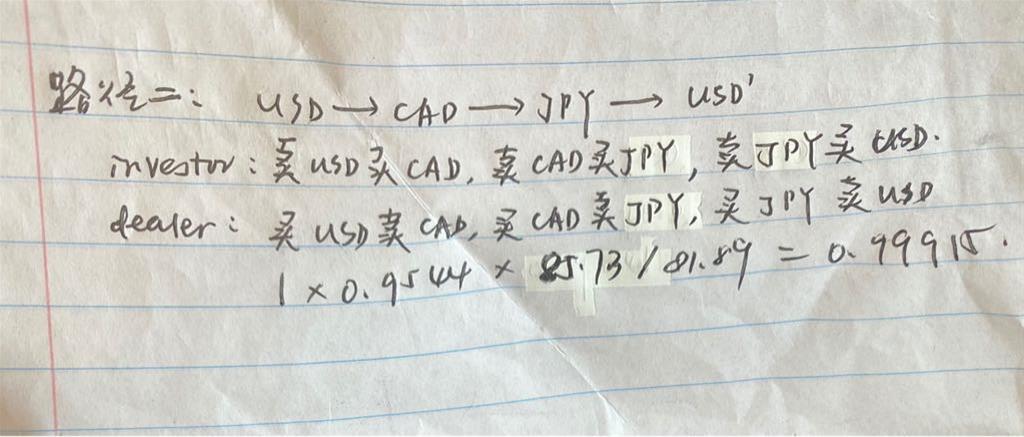 路径二: USD → CAD → JPY → USD'
investor: 卖 USD 买 CAD, 卖 CAD 买 JPY, 卖 JPY 买 USD.
dealer: 买 USD 卖 CAD, 买 CAD 卖 JPY, 买 JPY 卖 USD
1 × 0.9544 × 85.73 / 81.89 = 0.99915.